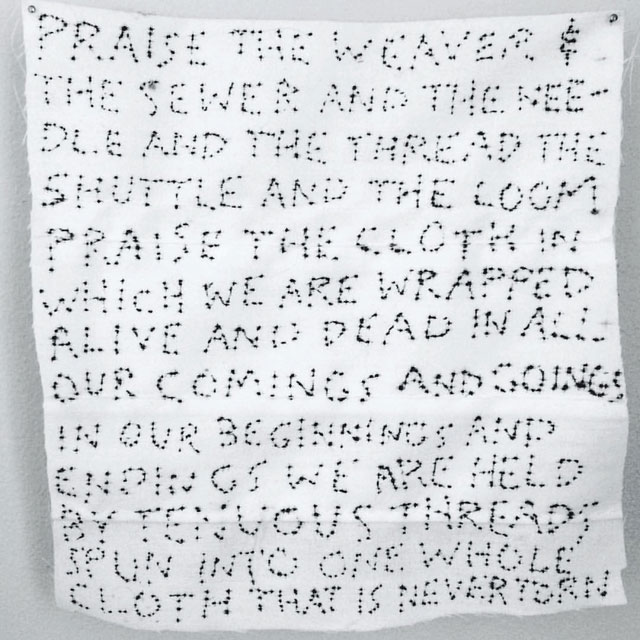 PRAISE THE WEAVER &
THE SEWER AND THE NEE-
DLE AND THE THREAD THE
SHUTTLE AND THE LOOM
PRAISE THE CLOTH IN
WHICH WE ARE WRAPPED
ALIVE AND DEAD IN ALL
OUR COMINGS AND GOINGS
IN OUR BEGINNINGS AND
ENDINGS WE ARE HELD
BY TENUOUS THREADS
SPUN INTO ONE WHOLE
CLOTH THAT IS NEVER TORN